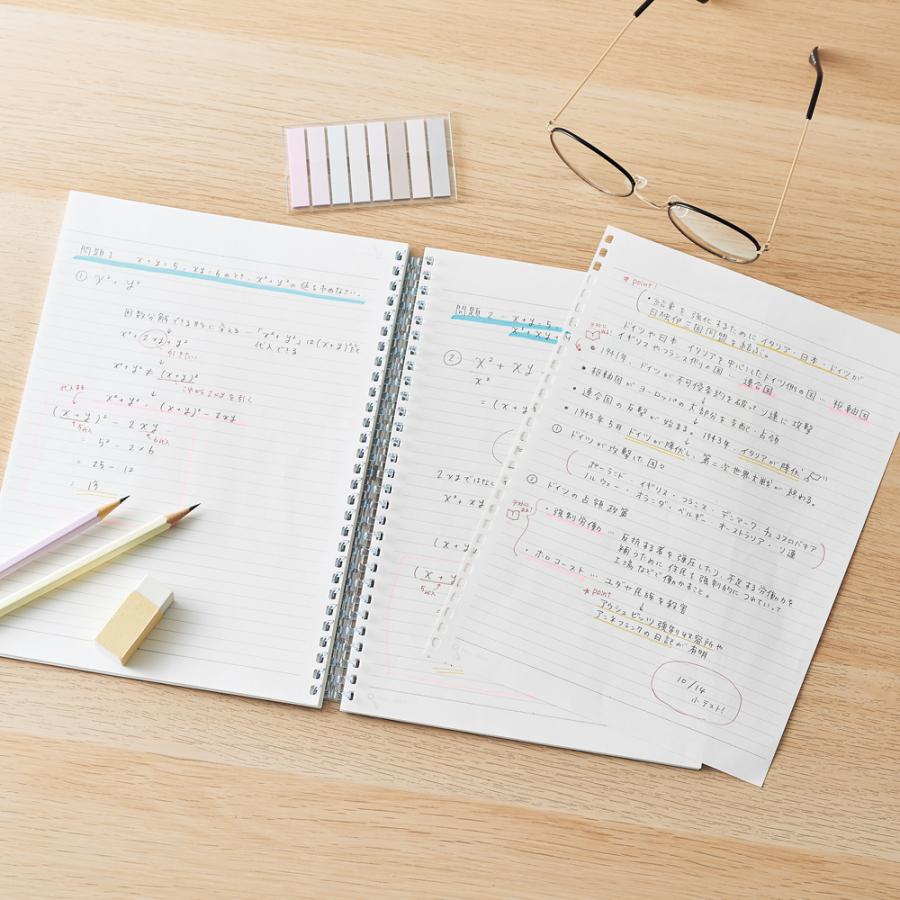 問題1 x+y=5, xy=6のとき、x²+y²の値を求めなさい。
① x²+y²
因数分解できる形に変える…「x²+y²」は(x+y)²として
代入できる
x²+2xy+y²
引きたい
x²+y² ≠ (x+y)²
これから2xyを引く
代入する
x²+y² (x+y)²-2xy
(x+y)² - 2xy
5代入 6代入
= 5² - 2×6
= 25 - 12
= 13
問題2 x+y=5
x²+xy
② x²+xy
x²
= (x+y
2xyではなく
x²+xy
(x+y
(x+y
5代入
=
* point!
・結束を強化するためにイタリア・日本・ドイツが
日独伊三国同盟を結ぶ。
ドイツや日本 イタリアを中心としたドイツ側の国… 枢軸国
イギリスやフランス側の国 … 連合国
• 1941年、ドイツが不可侵条約を破ってソ連に攻撃
• 枢軸国がヨーロッパの大部分を支配・占領
• 連合国の反撃が始まる。1943年 イタリアが降伏
• 1945年5月 ドイツが降伏し、第二次世界大戦が終わる。
① ドイツが攻撃した国々
ポーランド イギリス・フランス・デンマーク チェコスロバキア
ノルウェー・オランダ・ベルギー オーストラリア・ソ連
② ドイツの占領政策
・強制労働… 反抗する者を弾圧したり、不足する労働力を
補うために住民を強制的につれていって
工場などで働かすこと。
・ホロコースト… ユダヤ民族を殺害
* point
アウシュビッツ強制収容所や
アンネフランクの日記が有明
10/14
小テスト!